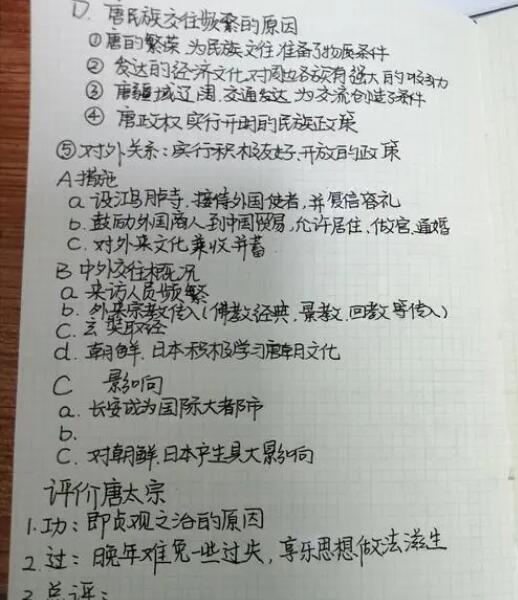 D. 唐民族交往频繁的原因
①唐的繁荣 为民族交往 准备了物质条件
② 发达的经济文化对周边各族有强大的吸引力
③ 唐疆域辽阔、交通发达 为交流创造了条件
④ 唐政权 实行开明的民族政策
⑤对外关系：实行积极友好、开放的政策
A措施
a 设鸿胪寺、接待外国使者，并具备容礼
b. 鼓励外国商人到中国贸易，允许居住、做官、通婚
C. 对外来文化兼收并蓄
B 中外交往概况
a 来访人员频繁
b. 外来宗教传入(佛教经典、景教、回教等传入)
C. 玄奘取经
d. 朝鲜、日本积极学习唐朝文化
C 影响
a. 长安成为国际大都市
b.
C. 对朝鲜、日本产生具大影响
评价唐太宗
1.功：即贞观之治的原因
2.过：晚年难免一些过失，享乐思想做法滋生
3 总评：